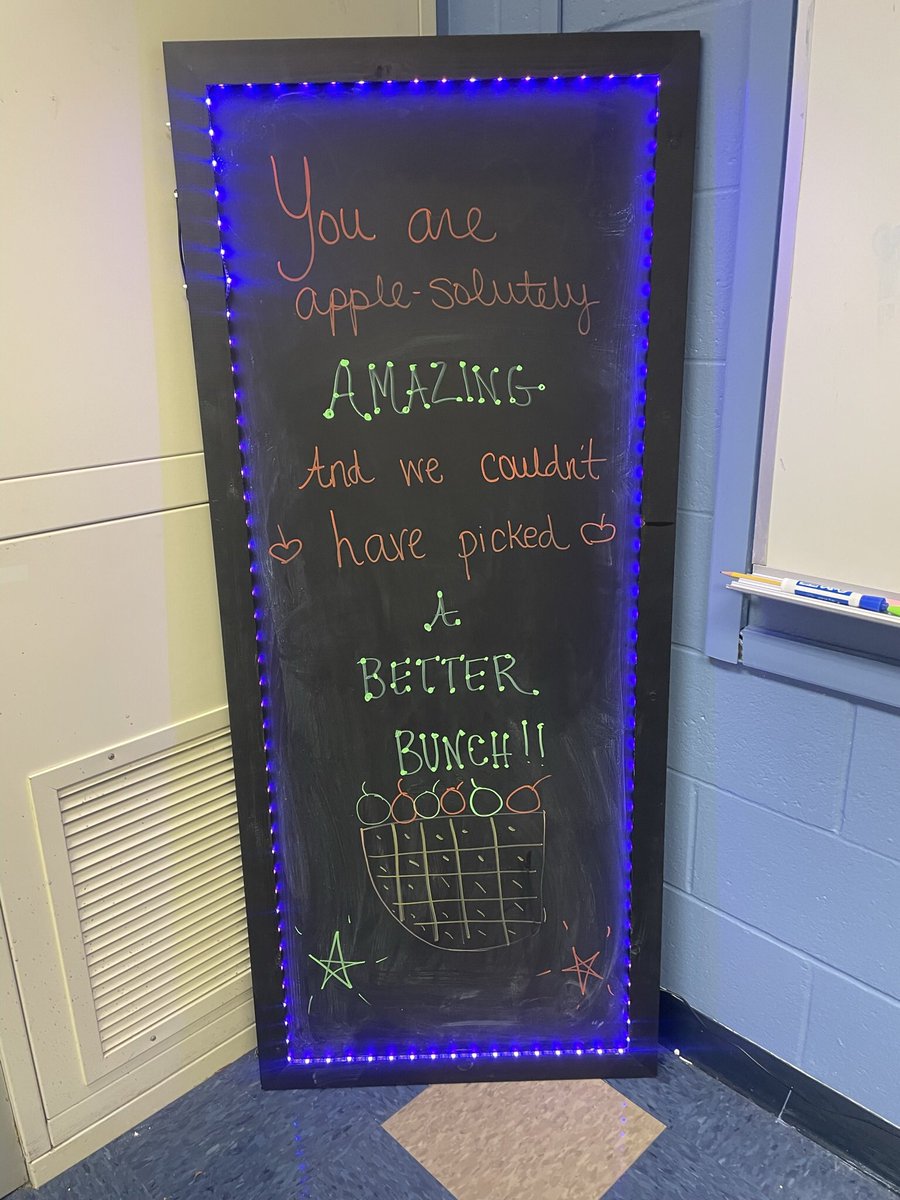 You are
apple-solutely
AMAZING
And we couldn't
have picked
A
BETTER
BUNCH!!